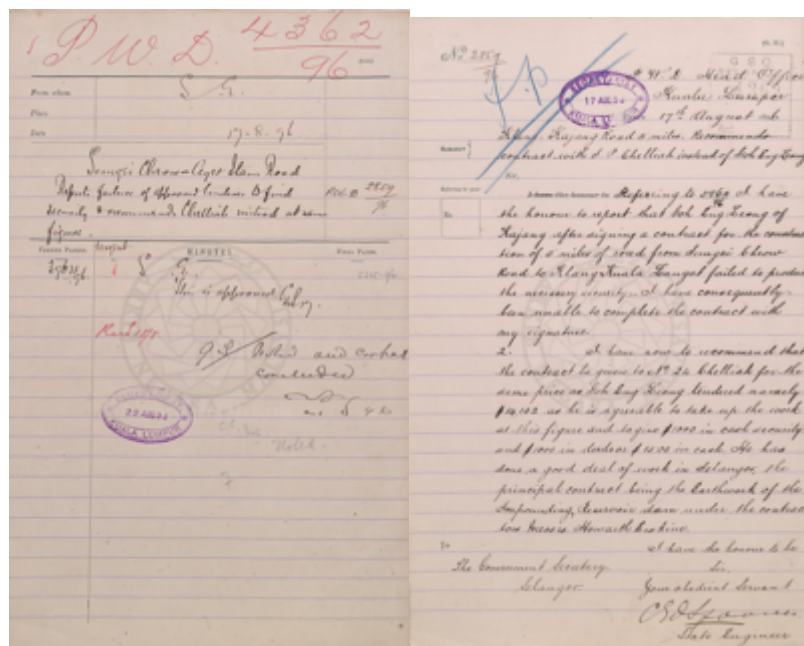 P. W. D. 4362
96
From whom S. E.
Place
Date 17-8-96
Sungei Chrow-Ayer Itam Road
Reports failure of approved tenderer to find
security & recommends Chelliah instead at same
figure.
P.W.D. 2859
96
MINUTES
This is approved
Noted and contract
concluded
22 AUG 96
KUALA LUMPUR
No 2859
96
P.W.D. Head Office
Kuala Lumpur
17th August 96
SECRETARIAT
17 AUG 96
SUBJECT
Klang-Kajang Road 5 miles. Recommends
contract with Chelliah instead of Goh Eng Leong
Sir,
Referring to I have
the honour to report that Goh Eng Leong of
Kajang after signing a contract for the construc
tion of 5 miles of road from Sungei Chrow
Road to Klang Kuala Langat failed to produce
the necessary security. I have consequently
been unable to complete the contract with
my signature.
2. I have now to recommend that
the contract be given to Chelliah for the
same price as Goh Eng Leong tendered namely
as he is agreeable to take up the work
at this figure and to give $1000 in cash security
and in cash. He has
done a good deal of work in Selangor, the
principal contract being the Earthwork of the
Impounding Reservoir dam under the contrac
tors Messrs Howarth Erskine.
I have the honour to be
To
Sir,
The Government Secretary
Selangor.
Your obedient Servant
State Engineer